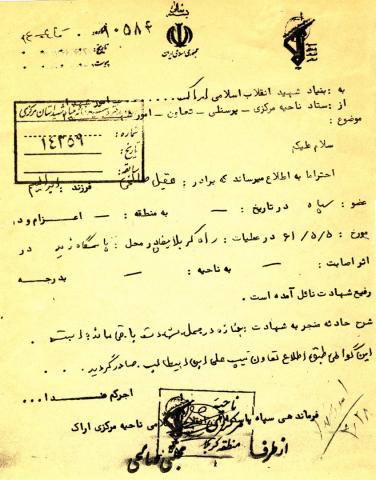 بسمه تعالی
جمهوری اسلامی ایران
شماره :
تاریخ :
پیوست :
به : بنیاد شهید انقلاب اسلامی اراک
از : ستاد ناحیه مرکزی - پرسنلی - تعاون - امور شهدا
موضوع :
شماره : ۱۴۳۵۹
تاریخ :
سلام علیکم
احتراما به اطلاع میرساند که برادر : عقیل فرزند : ابراهیم
عضو : سپاه در تاریخ : - به منطقه : - اعزام و در
مورخ : ۶۱/۵/۵ در عملیات : راه کربلا در محل : پاسگاه زید در
اثر اصابت : - به ناحیه : - به درجه
رفیع شهادت نائل آمده است .
شرح حادثه منجر به شهادت : جنازه در محل شهادت باقی مانده است
این گواهی طبق اطلاع تعاون تیپ علی ابن ابیطالب صادر گردید
اجرکم عند ا...
فرماندهی سپاه ناحیه مرکزی اراک
از طرف